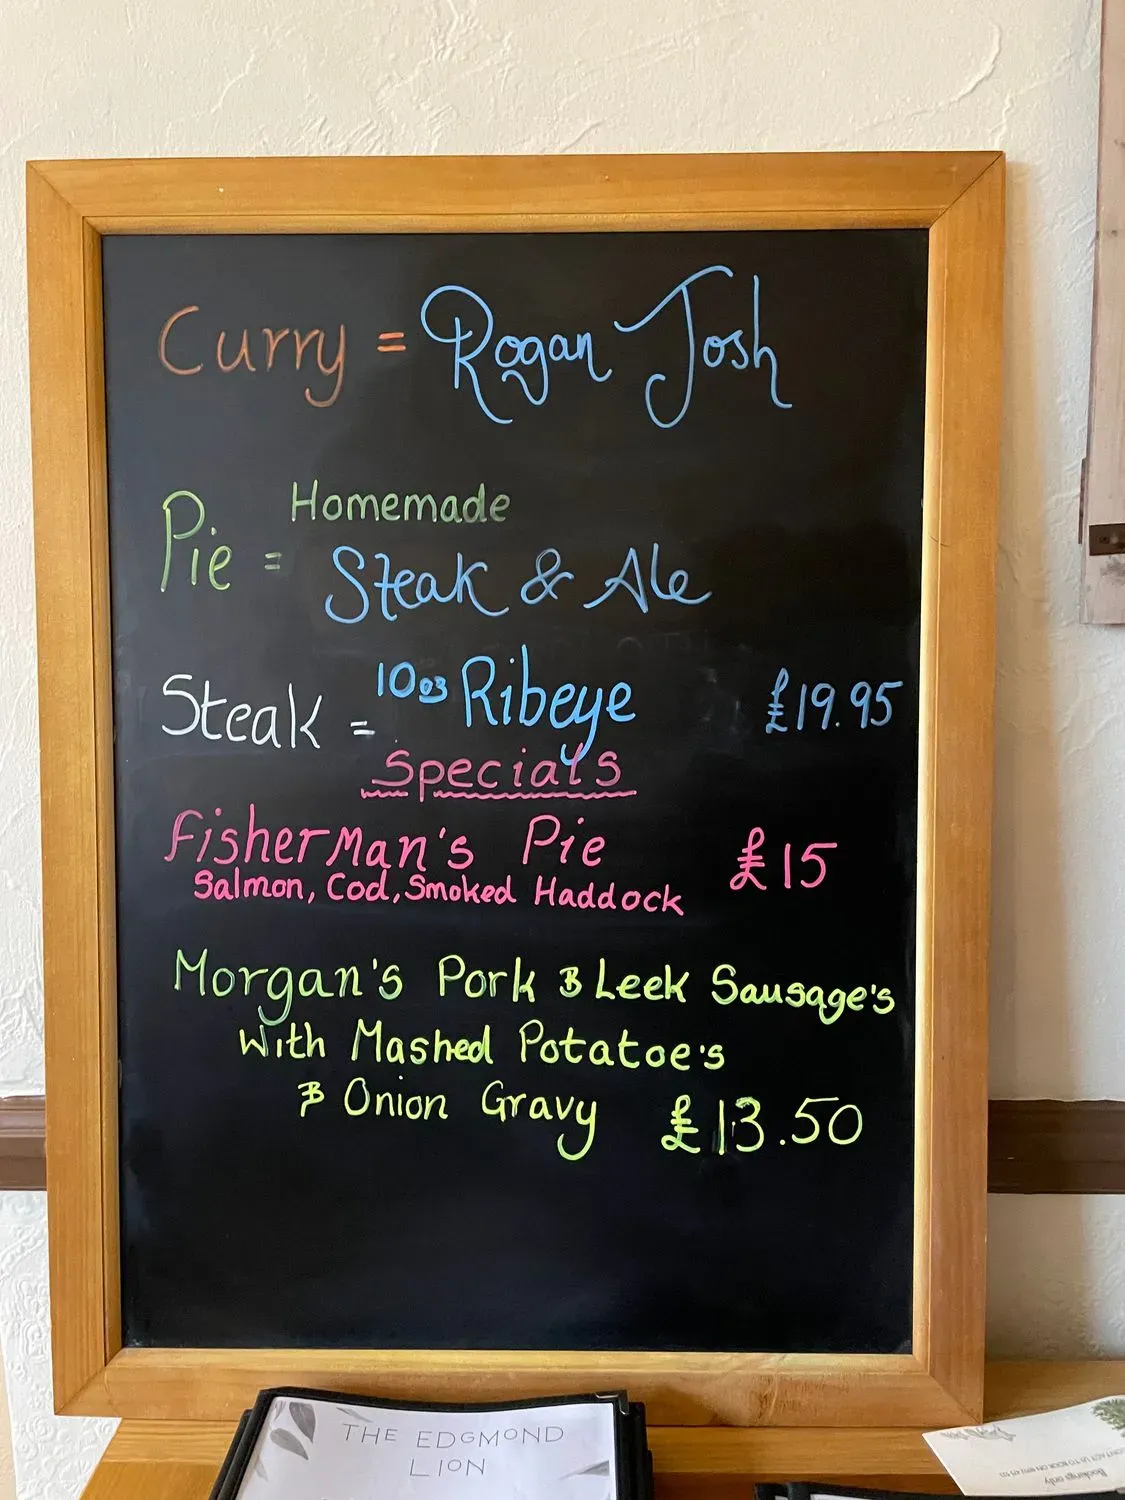 Curry = Rogan Josh
Homemade
Pie = Steak & Ale
Steak = 10oz Ribeye £19.95
Specials
Fisherman's Pie £15
Salmon, Cod, Smoked Haddock
Morgan's Pork & Leek Sausage's
with Mashed Potatoe's
& Onion Gravy £13.50
THE EDGMOND
LION
Bookings only